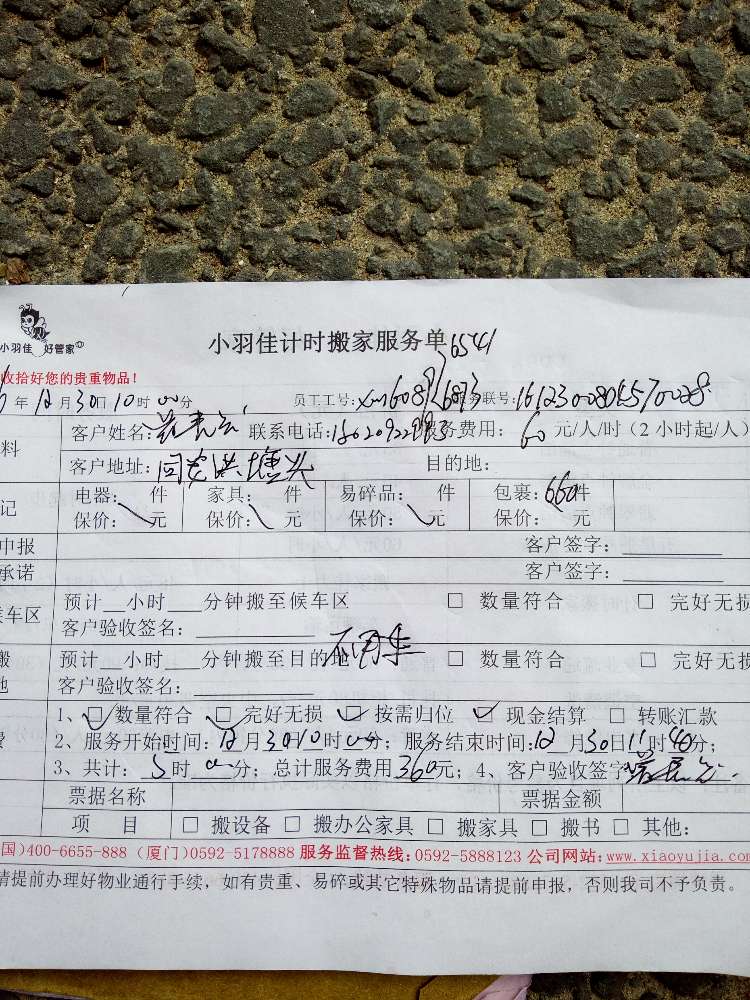 小羽佳 好管家
小羽佳计时搬家服务单 6541
收拾好您的贵重物品!
年12月30日10时00分 员工工号: 务联号:
料 客户姓名: 联系电话: 务费用: 60 元/人/时(2小时起/人)
客户地址: 同安洪塘头 目的地:
记 电器: 件 家具: 件 易碎品: 件 包裹: 660件
保价: 元 保价: 元 保价: 元 保价: 元
申报 客户签字:
承诺 客户签字:
候车区 预计 小时 分钟搬至候车区 □ 数量符合 □ 完好无损
客户验收签名:
搬 预计 小时 分钟搬至目的地 不用车 □ 数量符合 □ 完好无损
地 客户验收签名:
1、☑数量符合 ☑完好无损 ☑按需归位 ☑现金结算 □ 转账汇款
费 2、服务开始时间: 12月30日10时00分; 服务结束时间: 12月30日11时40分;
3、共计: 时 00分; 总计服务费用360元; 4、客户验收签字
票据名称 票据金额
项 目 □ 搬设备 □ 搬办公家具 □ 搬家具 □ 搬书 □ 其他:
国)400-6655-888 (厦门)0592-5178888 服务监督热线: 0592-5888123 公司网站: www.xiaoyujia.com
请提前办理好物业通行手续, 如有贵重、易碎或其它特殊物品请提前申报, 否则我司不予负责。